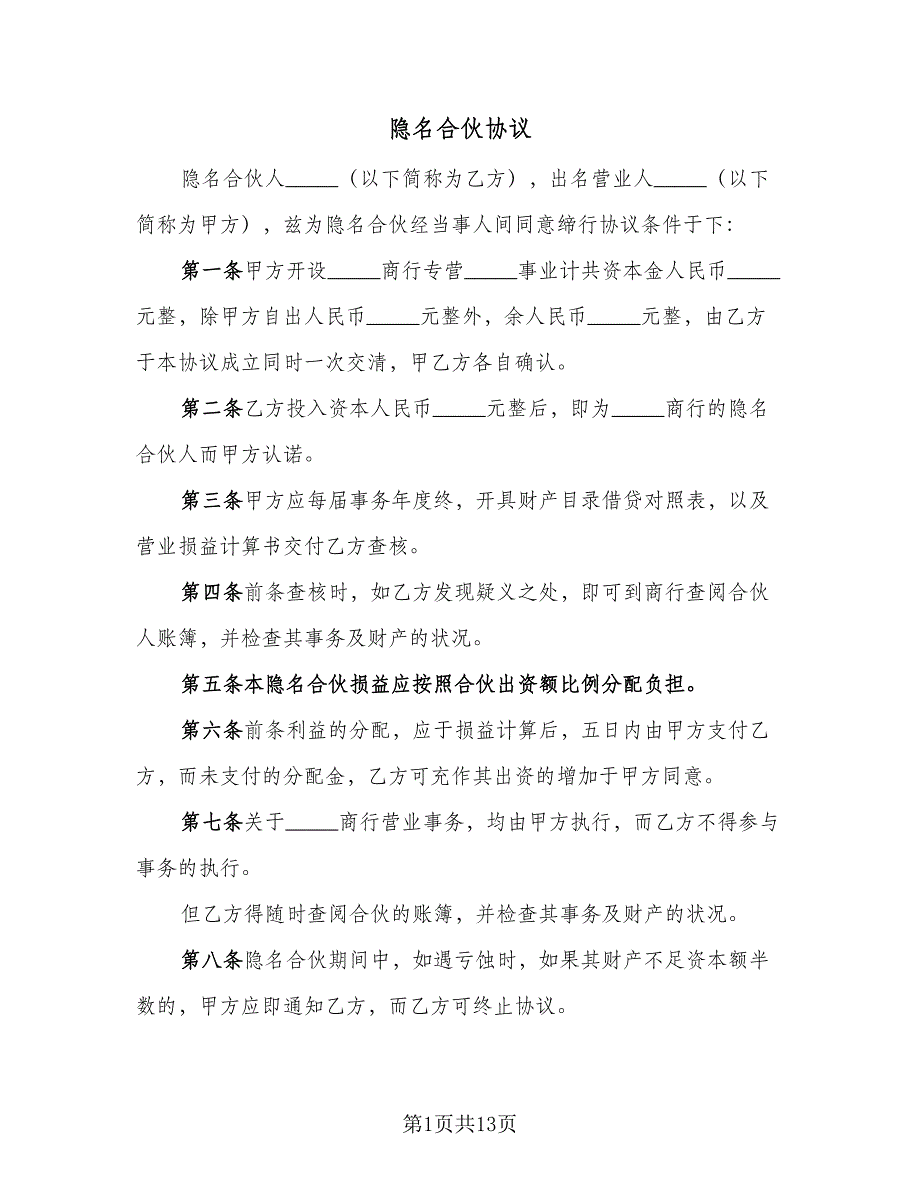 隐名合伙协议
隐名合伙人_____（以下简称为乙方），出名营业人_____（以下
简称为甲方），兹为隐名合伙经当事人间同意缔行协议条件于下：
第一条甲方开设_____商行专营_____事业计共资本金人民币_____
元整，除甲方自出人民币_____元整外，余人民币_____元整，由乙方
于本协议成立同时一次交清，甲乙方各自确认。
第二条乙方投入资本人民币_____元整后，即为_____商行的隐名
合伙人而甲方认诺。
第三条甲方应每届事务年度终，开具财产目录借贷对照表，以及
营业损益计算书交付乙方查核。
第四条前条查核时，如乙方发现疑义之处，即可到商行查阅合伙
人账簿，并检查其事务及财产的状况。
第五条本隐名合伙损益应按照合伙出资额比例分配负担。
第六条前条利益的分配，应于损益计算后，五日内由甲方支付乙
方，而未支付的分配金，乙方可充作其出资的增加于甲方同意。
第七条关于_____商行营业事务，均由甲方执行，而乙方不得参与
事务的执行。
但乙方得随时查阅合伙的账簿，并检查其事务及财产的状况。
第八条隐名合伙期间中，如遇亏蚀时，如果其财产不足资本额半
数的，甲方应即通知乙方，而乙方可终止协议。
第1页共13页